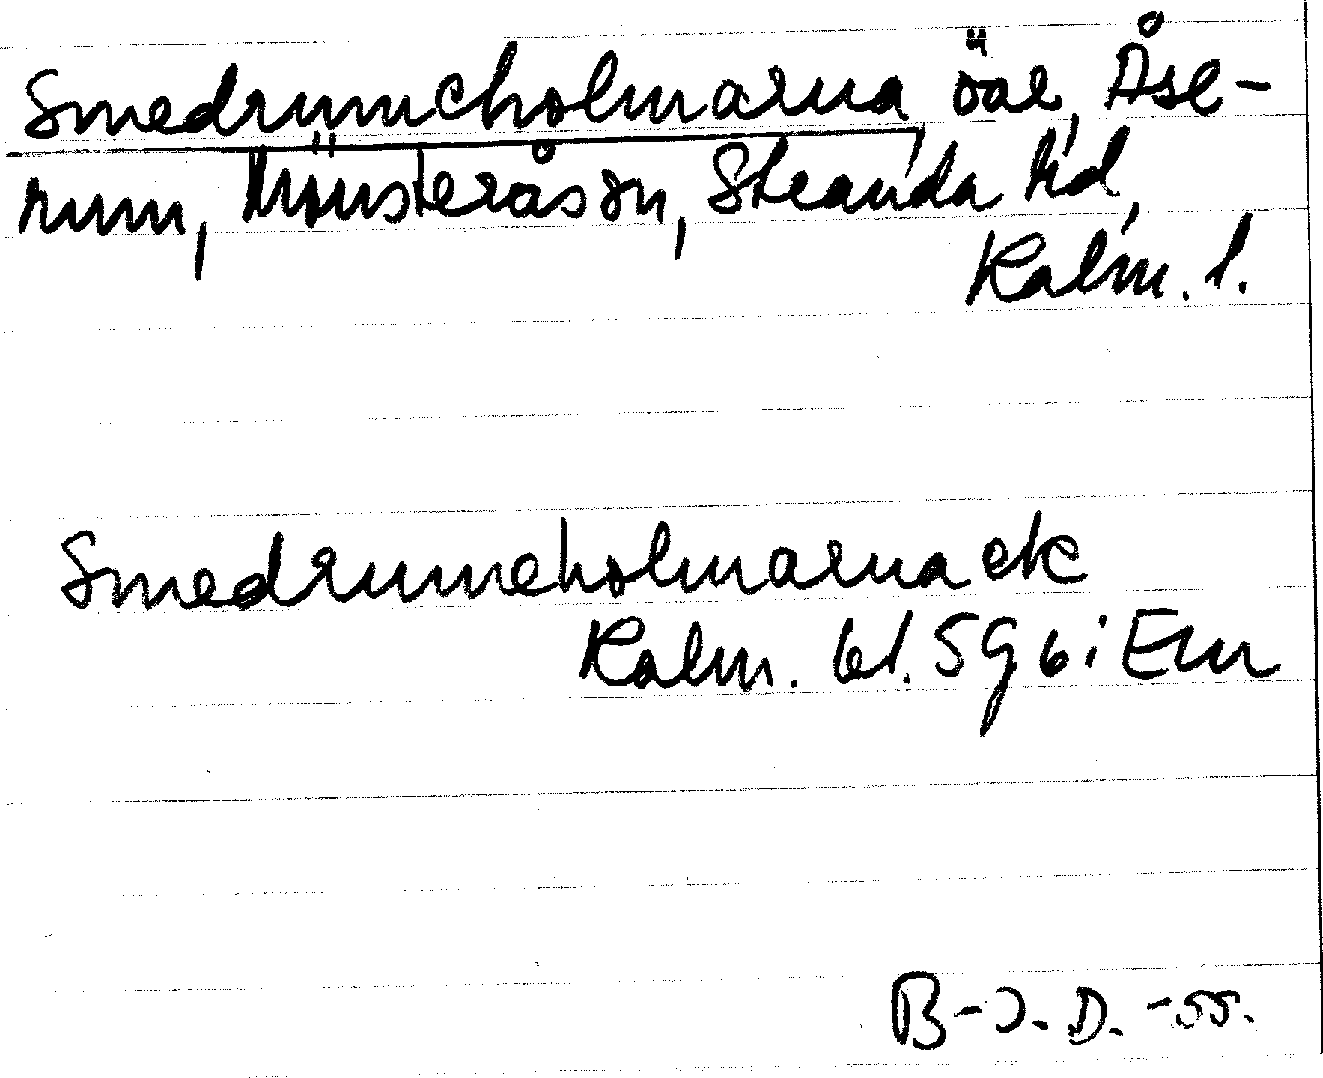 Smedrumeholmarna, öar, Åse-
rum, Mönsterås sn, Stranda hd,
Kalm. l.
Smedrumeholmarna ek
Kalm. bl. 5 9 6 i Em
B-J. D. -55.